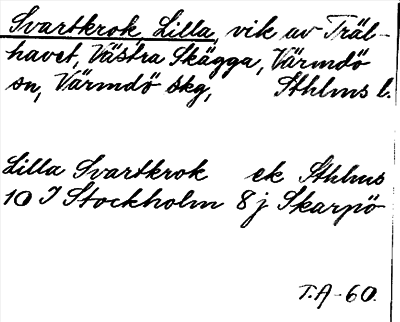 Svartkrok, Lilla, vik av Träl-
havet, Västra Skägga, Värmdö
sn, Värmdö skg, Sthlms l.
Lilla Svartkrok ek Sthlms
10 I Stockholm 8 j Skarpö
T.A-60.